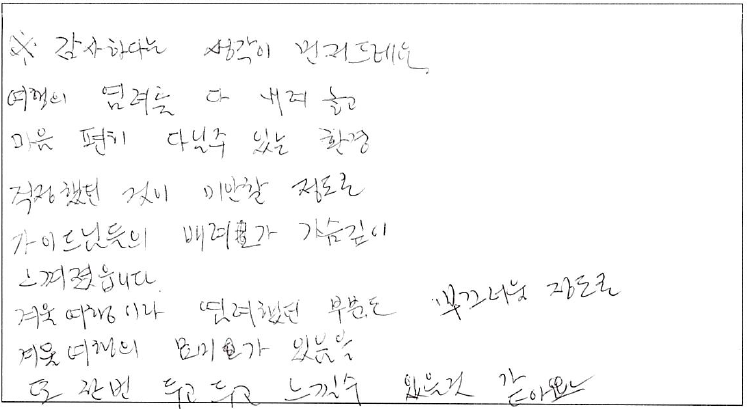 ※ 감사하다는 생각이 먼저드네요.
여행의 염려를 다 내려 놓고
마음 편히 다닐수 있는 환경
걱정했던 것이 미안할 정도로
가이드님들의 배려가 가슴깊이
느껴졌읍니다.
겨울 여행이라 염려했던 부분도 부끄러울 정도로
겨울여행의 묘미가 있음을
또 한번 두고 두고 느낄수 있을것 같아요